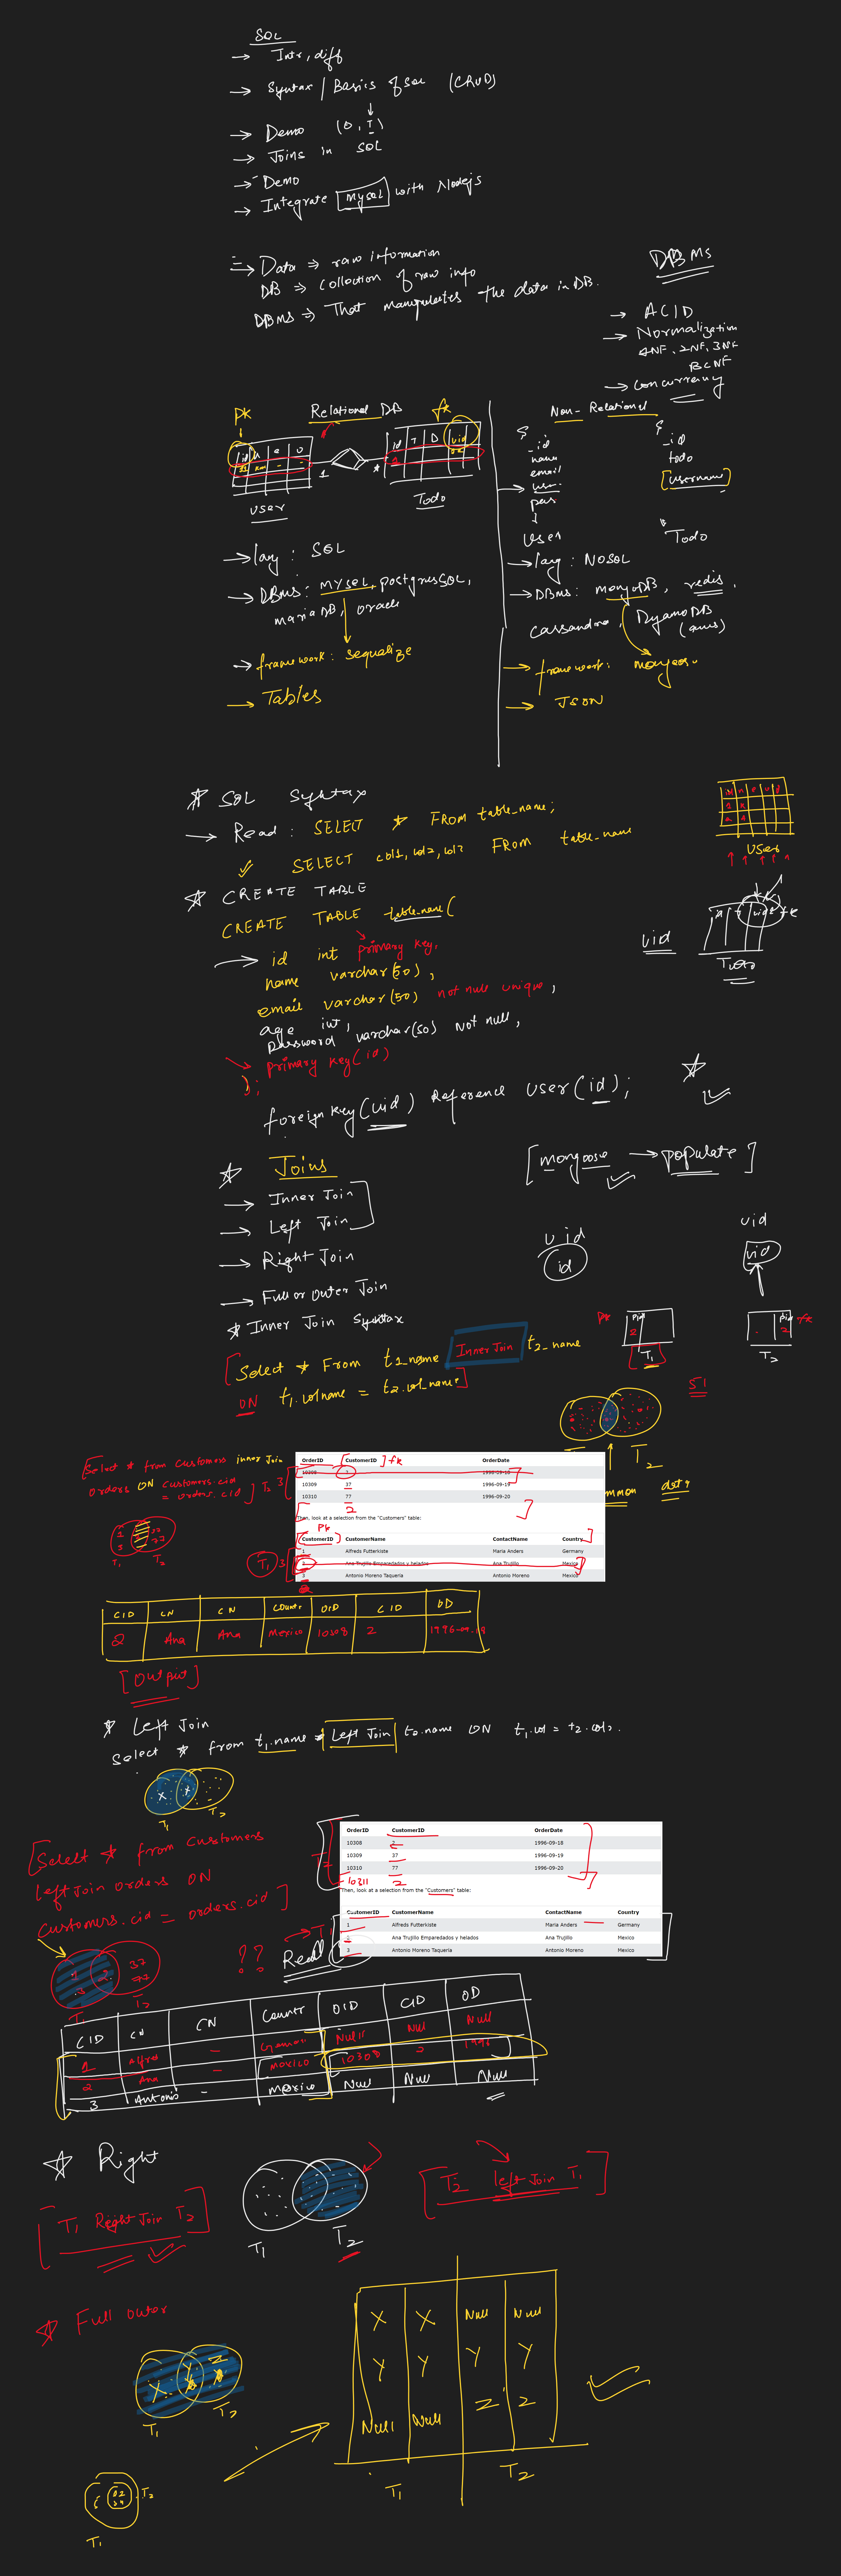 SQL
→ Intr, diff
→ Syntax / Basics of SQL (CRUD)
→ Demo (0, 1)
→ Joins in SQL
→ Demo
→ Integrate MySQL with Nodejs
→ Data ⇒ raw information
DB ⇒ collection of raw info
DBMS ⇒ That manupulates the data in DB.
DBMS
→ ACID
→ Normalization
1NF, 2NF, 3NF
BCNF
→ Concurrency
PK Relational DB fk
id
id T D uid
1 *
User Todo
→ lang : SQL
→ DBms : MYSQL, postgresSQL,
mariaDB, oracle
→ framework : sequalize
→ Tables
Non-Relational
{ {
_id _id
name todo
email [username]
pas
User Todo
→ lang : NOSQL
→ DBms : mongoDB, redis,
Cassandra, DynamoDB
(aws)
→ framework :
→ JSON
* SQL Syntax
→ Read : SELECT * FROM table_name;
SELECT col1, col2, col3 FROM table_name
User
* CREATE TABLE
CREATE TABLE table_name (
→ id int primary key,
name varchar(50),
email varchar(50) not null unique,
age int,
password varchar(50) not null,
primary key (id)
);
uid
Todo
foreign key (uid) Reference user (id);
* Joins
[mongoose → populate]
→ Inner Join
→ Left Join
→ Right Join
→ Full or Outer Join
uid uid
id uid
* Inner Join Syntax
[Select * From t1_name Inner Join t2_name
ON t1.colname = t2.col_name]
PK fk
T1 T2
51
T2
[Select * from customers inner join
orders ON customers.cid
= orders.cid] T2 3
OrderID CustomerID ] fk OrderDate
10308 2 1996-09-18
10309 37 1996-09-19
10310 77 1996-09-20
2
Then, look at a selection from the "Customers" table:
PK
CustomerID CustomerName ContactName Country
1 Alfreds Futterkiste Maria Anders Germany
2 Ana Trujillo Emparedados y helados Ana Trujillo Mexico
3 Antonio Moreno Taquería Antonio Moreno Mexico
T1 3
T1 T2
CID CN CN Country OID CID OD
2 Ana Ana Mexico 10308 2 1996-09-18
[Output]
* Left Join
Select * from t1.name Left Join t2.name ON t1.col = t2.col2.
T1 T2
[Select * from Customers
left Join orders ON
customers.cid = orders.cid]
OrderID CustomerID OrderDate
10308 2 1996-09-18
10309 37 1996-09-19
10310 77 1996-09-20
10311 2
Then, look at a selection from the "Customers" table:
CustomerID CustomerName ContactName Country
1 Alfreds Futterkiste Maria Anders Germany
2 Ana Trujillo Emparedados y helados Ana Trujillo Mexico
3 Antonio Moreno Taquería Antonio Moreno Mexico
2 37
77
T1 T2
??
CID CN CN Country OID CID OD
1 Alfred - German Null Null Null
2 Ana - Mexico 10308 2 1996
3 Antonio - Mexico Null Null Null
* Right
T1 T2
[T1 Right Join T2]
[T2 left Join T1]
* Full outer
X Y Z
T1 T2
X X Null Null
Y Y Y Y
Null Null Z Z
T1 T2
T2
T1